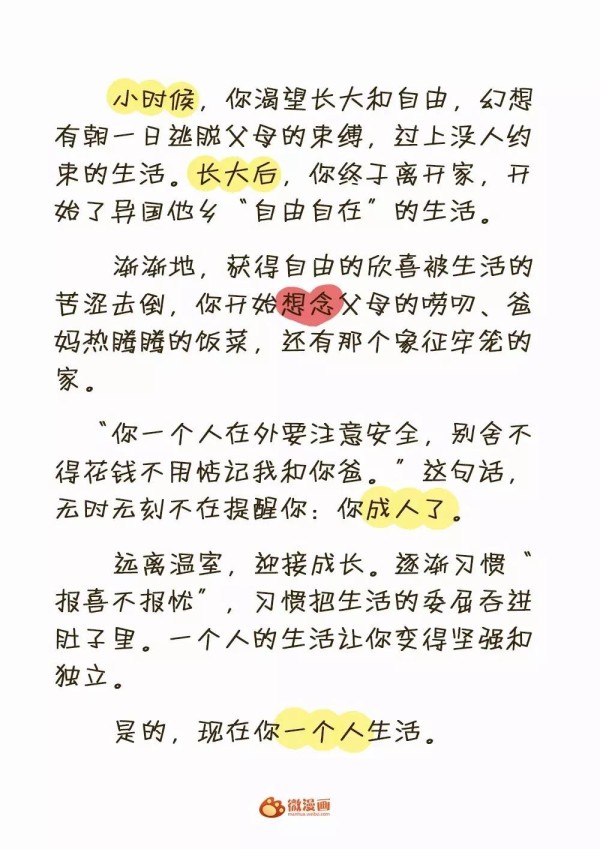 小时候，你渴望长大和自由，幻想
有朝一日逃脱父母的束缚，过上没人约
束的生活。长大后，你终于离开家，开
始了异国他乡“自由自在”的生活。
渐渐地，获得自由的欣喜被生活的
苦涩击倒，你开始想念父母的唠叨、爸
妈热腾腾的饭菜，还有那个象征牢笼的
家。
“你一个人在外要注意安全，别舍不
得花钱不用惦记我和你爸。”这句话，
无时无刻不在提醒你：你成人了。
远离温室，迎接成长。逐渐习惯“
报喜不报忧”，习惯把生活的委屈吞进
肚子里。一个人的生活让你变得坚强和
独立。
是的，现在你一个人生活。
微漫画
manhua.weibo.com